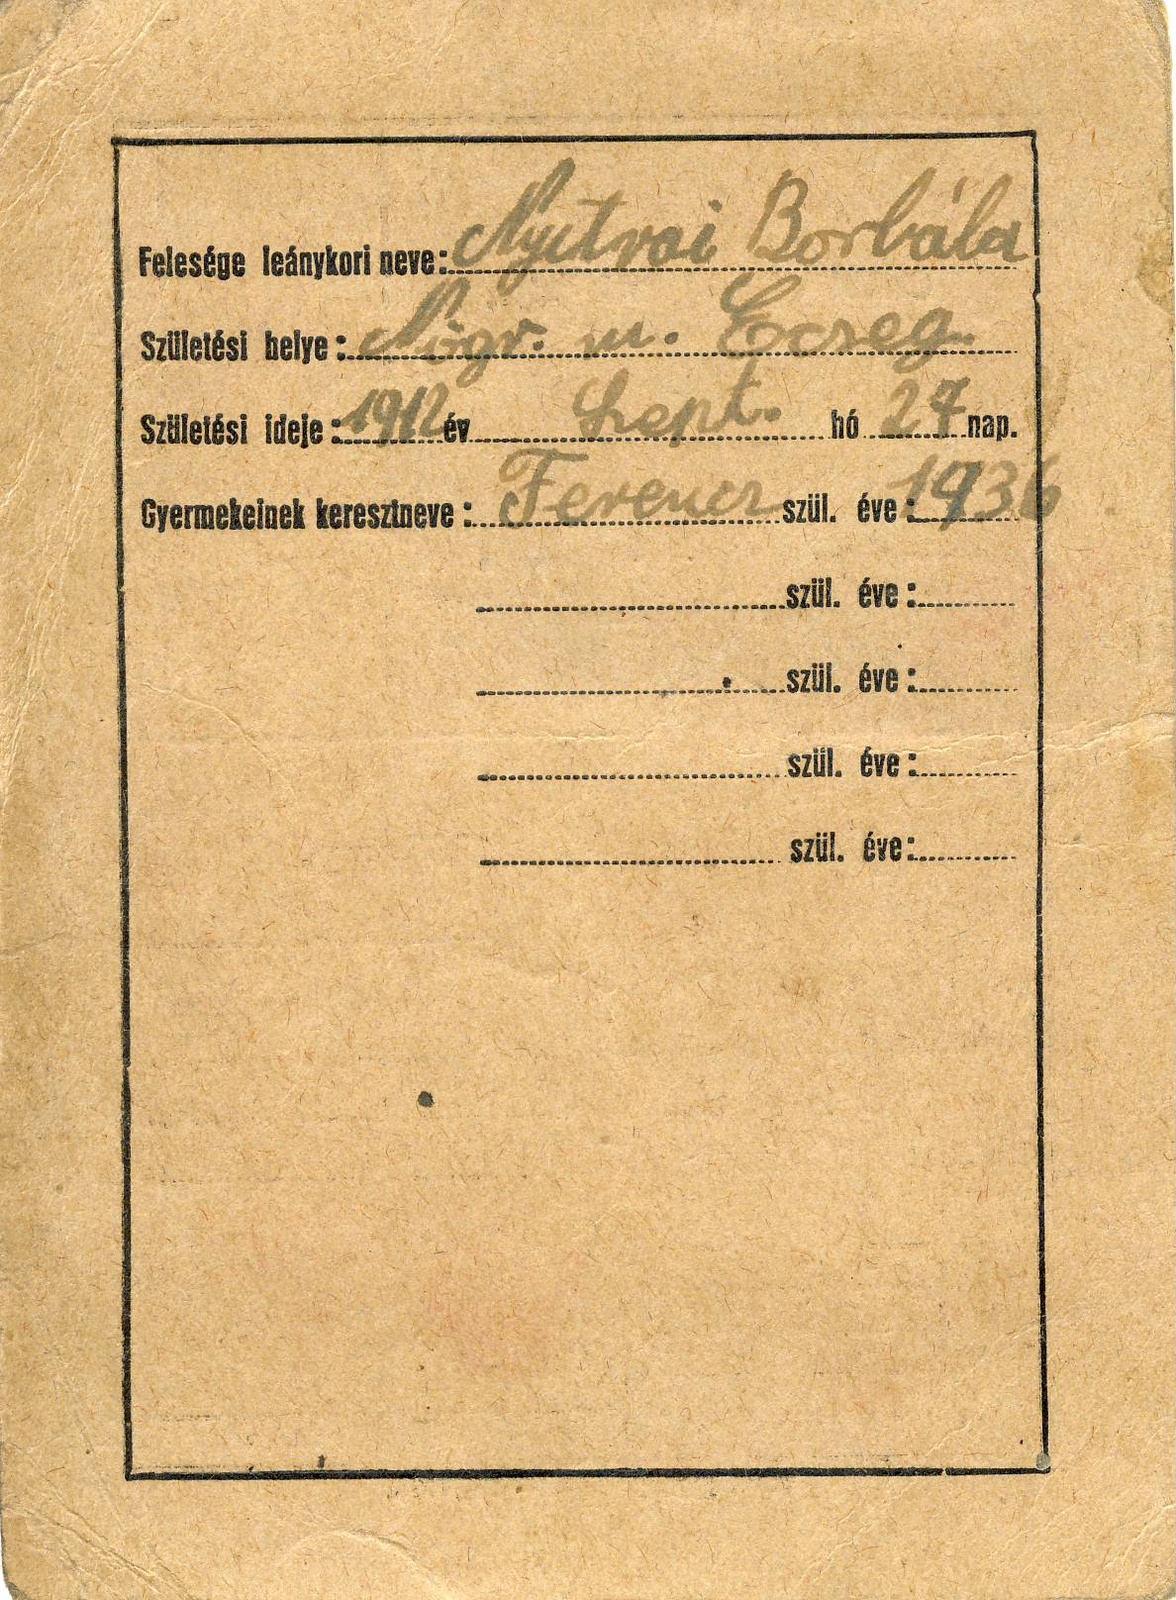 Felesége leánykori neve: Nyitrai Borbála
Születési helye: Nógr. m. Ecseg.
Születési ideje: 1912 év Szept. hó 27 nap.
Gyermekeinek keresztneve: Ferencz szül. éve: 1936
szül. éve:
szül. éve:
szül. éve:
szül. éve: